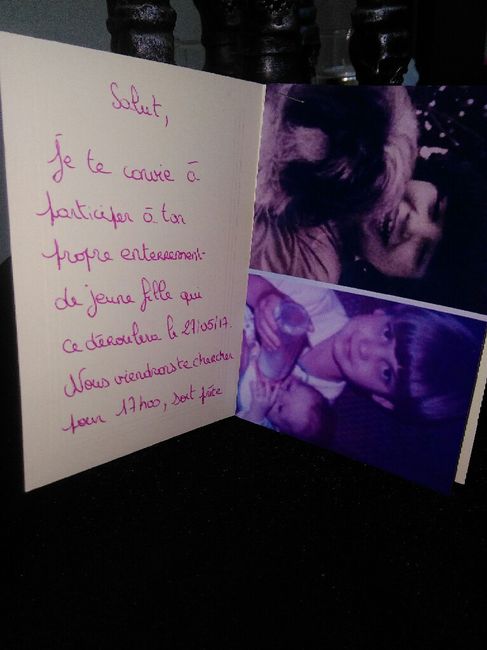 Salut,
Je te convie à
participer à ton
propre enterrement
de jeune fille qui
ce déroulera le 27/05/17.
Nous viendrons te chercher
pour 17h00, soit prête